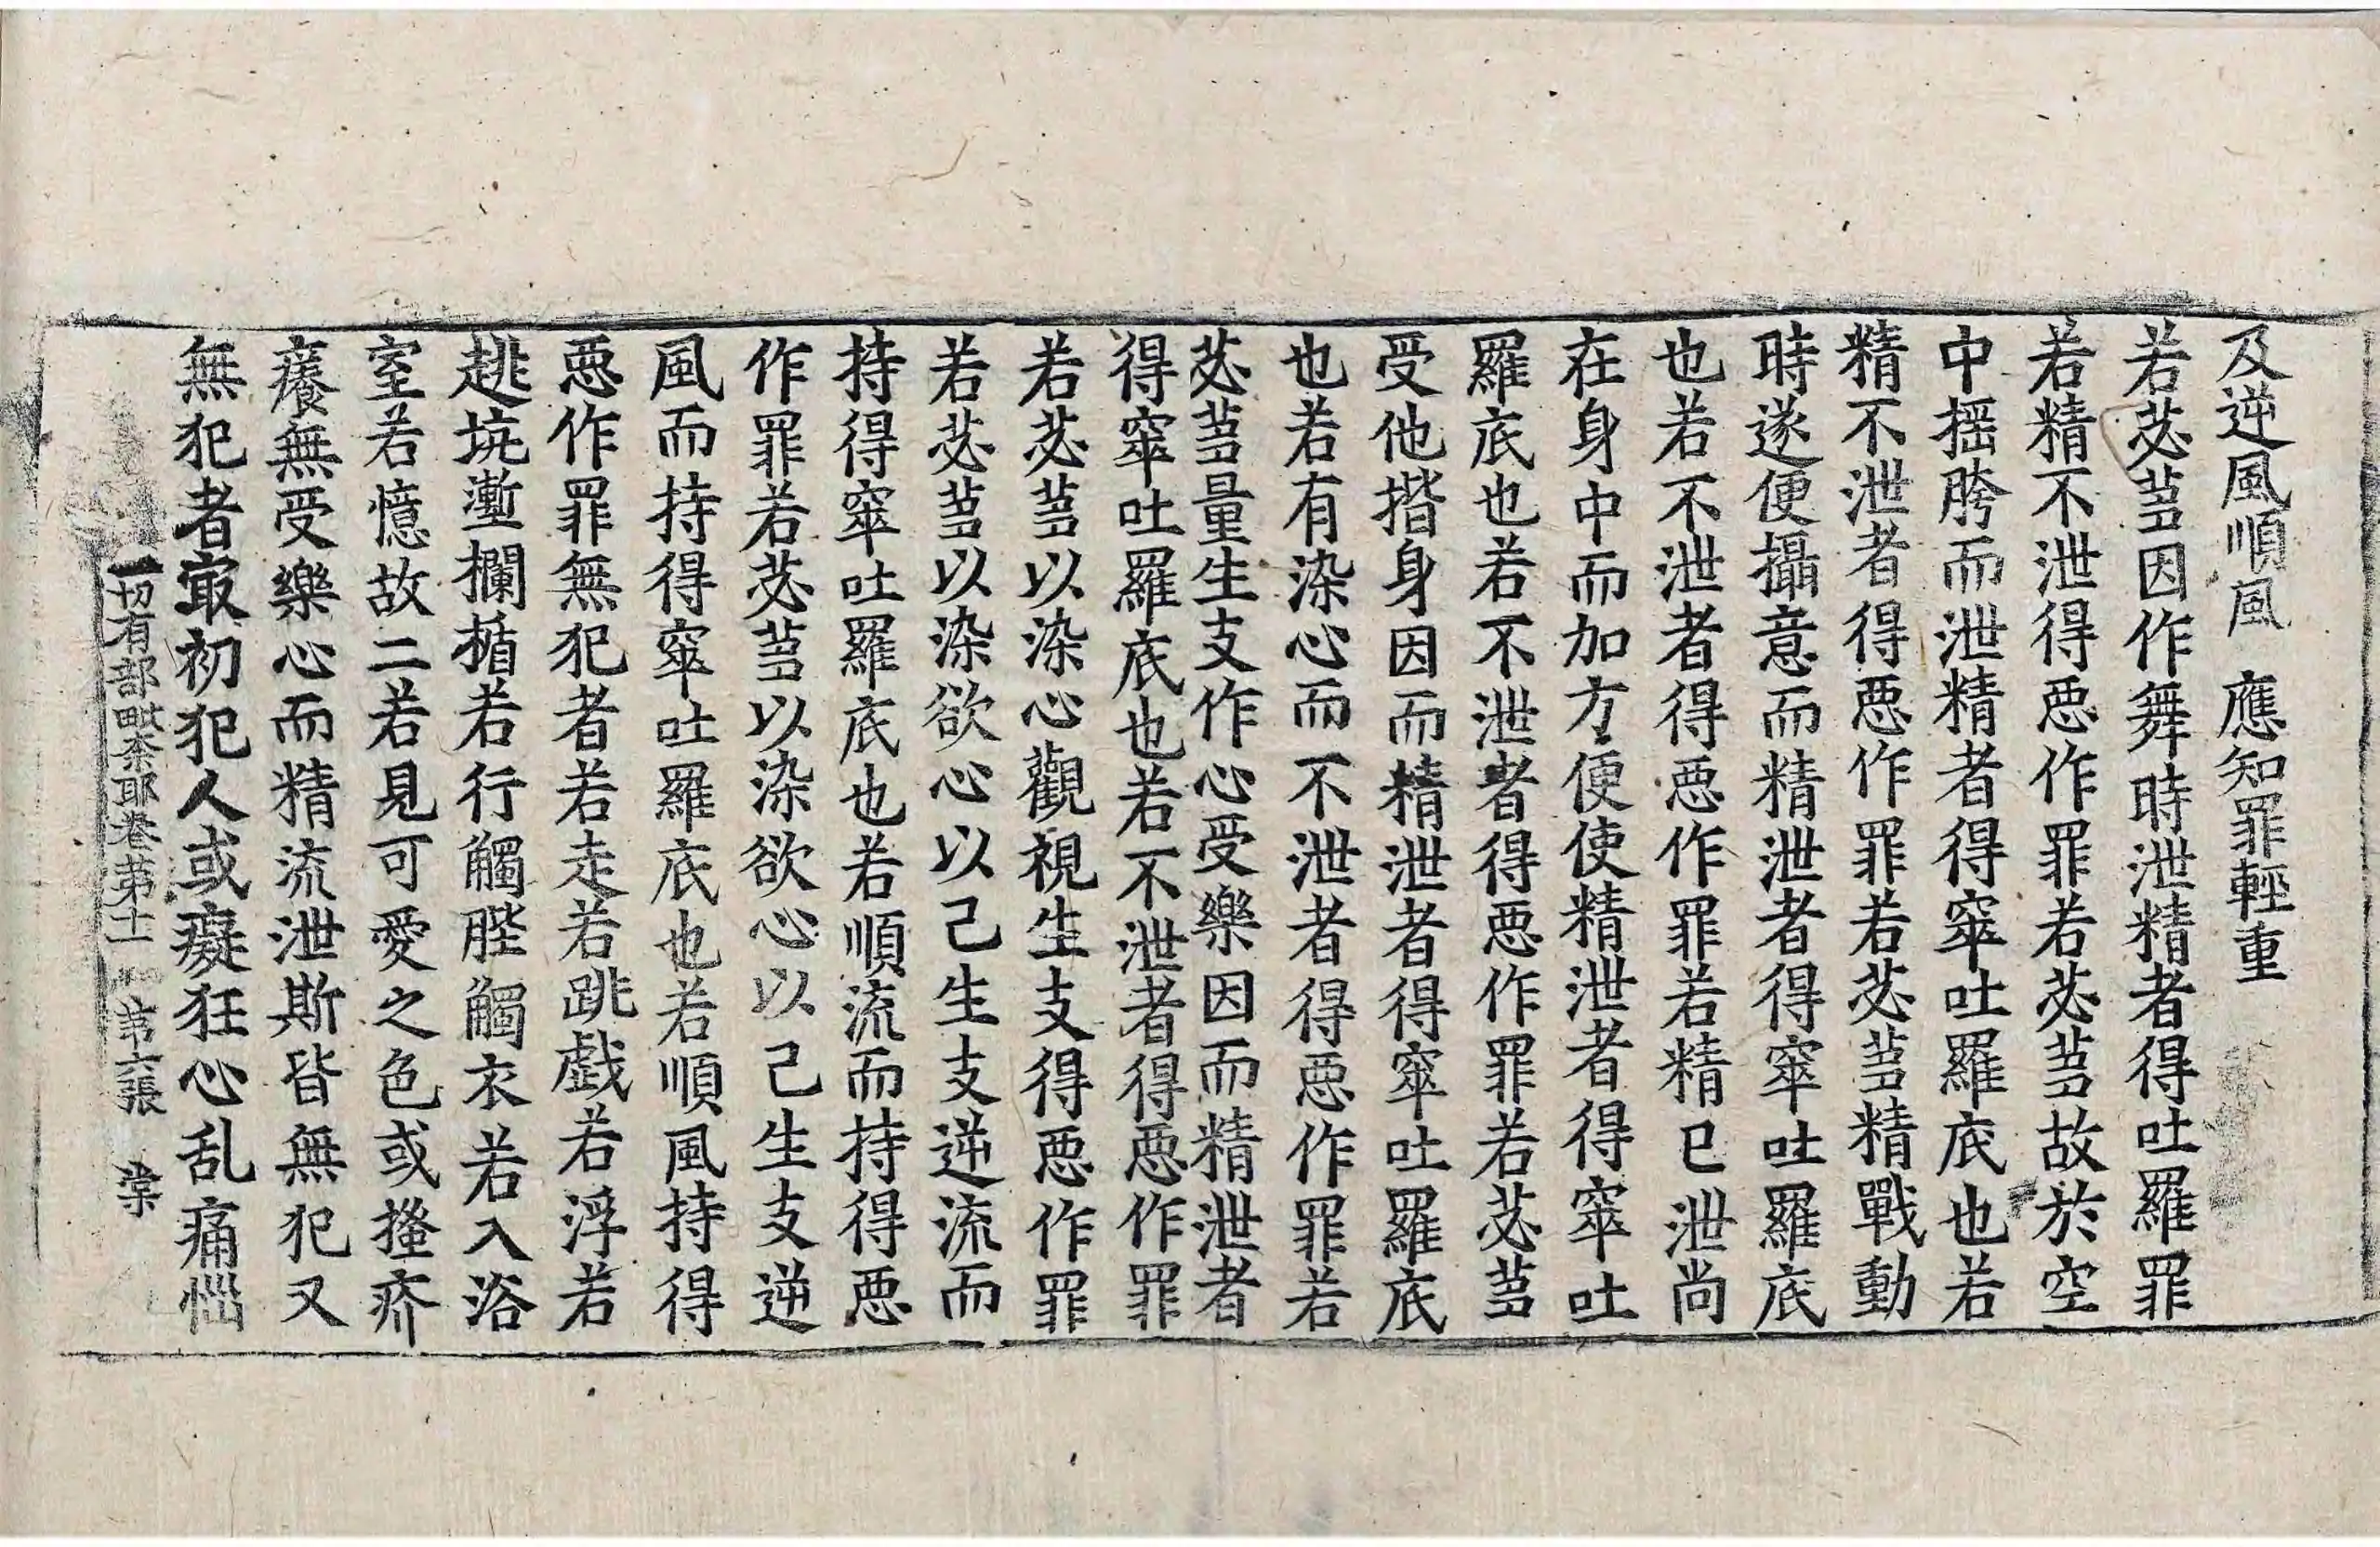 及逆風順風　應知罪輕重
若苾芻因作舞時泄精者得吐羅罪
若精不泄得惡作罪若苾芻故於空
中摇胯而泄精者得窣吐羅底也若
精不泄者得惡作罪若苾芻精戰動
時遂便攝意而精泄者得窣吐羅底
也若不泄者得惡作罪若精已泄尚
在身中而加方便使精泄者得窣吐
羅底也若不泄者得惡作罪若苾芻
受他揩身因而精泄者得窣吐羅底
也若有染心而不泄者得惡作罪若
苾芻量生支作心受樂因而精泄者
得窣吐羅底也若不泄者得惡作罪
若苾芻以染心觀視生支得惡作罪
若苾芻以染欲心以己生支逆流而
持得窣吐羅底也若順流而持得惡
作罪若苾芻以染欲心以己生支逆
風而持得窣吐羅底也若順風持得
惡作罪無犯者若走若跳戲若浮若
趒坑壍欄楯若行觸䏶觸衣若入浴
室若憶故二若見可愛之色或搔疥
癢無受樂心而精流泄斯皆無犯又
無犯者㝡初犯人或癡狂心乱痛惱
一切有部毗柰耶卷第十一　第六張　棠